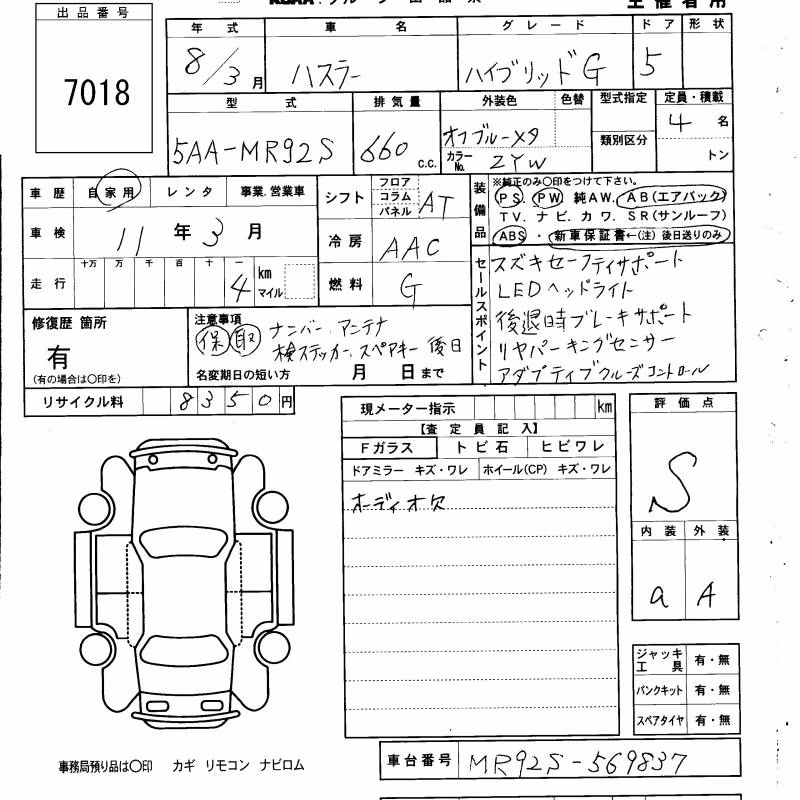 出品番号
7018
主催者用
年式 車名 グレード ドア 形状
8/3月 ハスラー ハイブリッドG 5
型式 排気量 外装色 色替 型式指定 定員・積載
5AA-MR92S 660 c.c. オフブルーメタ 類別区分 4名
カラーNo. ZYW トン
車歴 自家用 レンタ 事業.営業車
車検 11年3月
走行 十万 万 千 百 十 一
4 km マイル
シフト フロア コラム パネル AT
冷房 AAC
燃料 G
装備品 ※純正のみ○印をつけて下さい。
PS. PW 純AW. AB(エアバック)
TV. ナビ. カワ. SR(サンルーフ)
ABS ・ 新車保証書←(注) 後日送りのみ
セールスポイント
スズキセーフティサポート
LEDヘッドライト
後退時ブレーキサポート
リヤパーキングセンサー
アダプティブクルーズコントロール
修復歴 箇所
有
(有の場合は○印を)
注意事項
保 取 ナンバー.アンテナ
検ステッカー.スペアキー 後日
名変期日の短い方 月 日まで
リサイクル料 8350円
現メーター指示 km
【査定員記入】
Fガラス トビ石 ヒビワレ
ドアミラー キズ・ワレ ホイール(CP) キズ・ワレ
オーディオ欠
評価点
S
内装 外装
a A
ジャッキ工具 有・無
パンクキット 有・無
スペアタイヤ 有・無
事務局預り品は○印 カギ リモコン ナビロム
車台番号 MR92S-569837